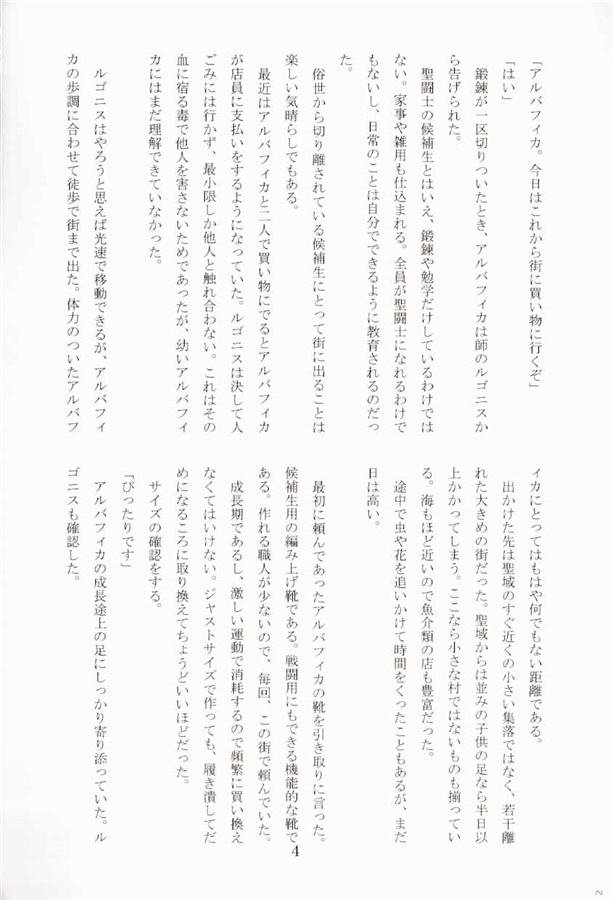 「アルバフィカ。今日はこれから街に買い物に行くぞ」
「はい」
　鍛錬が一区切りついたとき、アルバフィカは師のルゴニスか
ら告げられた。
　聖闘士の候補生とはいえ、鍛錬や勉学だけしているわけでは
ない。家事や雑用も仕込まれる。全員が聖闘士になれるわけで
もないし、日常のことは自分でできるように教育されるのだっ
た。
　俗世から切り離されている候補生にとって街に出ることは
楽しい気晴らしでもある。
　最近はアルバフィカと二人で買い物にでるとアルバフィカ
が店員に支払いをするようになっていた。ルゴニスは決して人
ごみには行かず、最小限しか他人と触れ合わない。これはその
血に宿る毒で他人を害さないためであったが、幼いアルバフィ
カにはまだ理解できていなかった。
　ルゴニスはやろうと思えば光速で移動できるが、アルバフィ
カの歩調に合わせて徒歩で街まで出た。体力のついたアルバフ
ィカにとってはもはや何でもない距離である。
　出かけた先は聖域のすぐ近くの小さい集落ではなく、若干離
れた大きめの街だった。聖域からは並みの子供の足なら半日以
上かかってしまう。ここなら小さな村ではないものも揃ってい
る。海もほど近いので魚介類の店も豊富だった。
　途中で虫や花を追いかけて時間をくったこともあるが、まだ
日は高い。
　最初に頼んであったアルバフィカの靴を引き取りに言った。
候補生用の編み上げ靴である。戦闘用にもできる機能的な靴で
ある。作れる職人が少ないので、毎回、この街で頼んでいた。
　成長期であるし、激しい運動で消耗するので頻繁に買い換え
なくてはいけない。ジャストサイズで作っても、履き潰してだ
めになるころに取り換えてちょうどいいほどだった。
　サイズの確認をする。
「ぴったりです」
　アルバフィカの成長途上の足にしっかり寄り添っていた。ル
ゴニスも確認した。
4
2